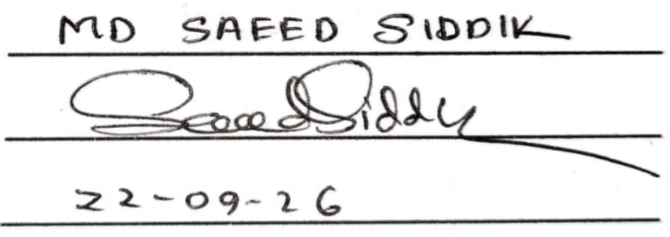 MD SAEED SIDDIK
Saeed Siddik
22-09-26